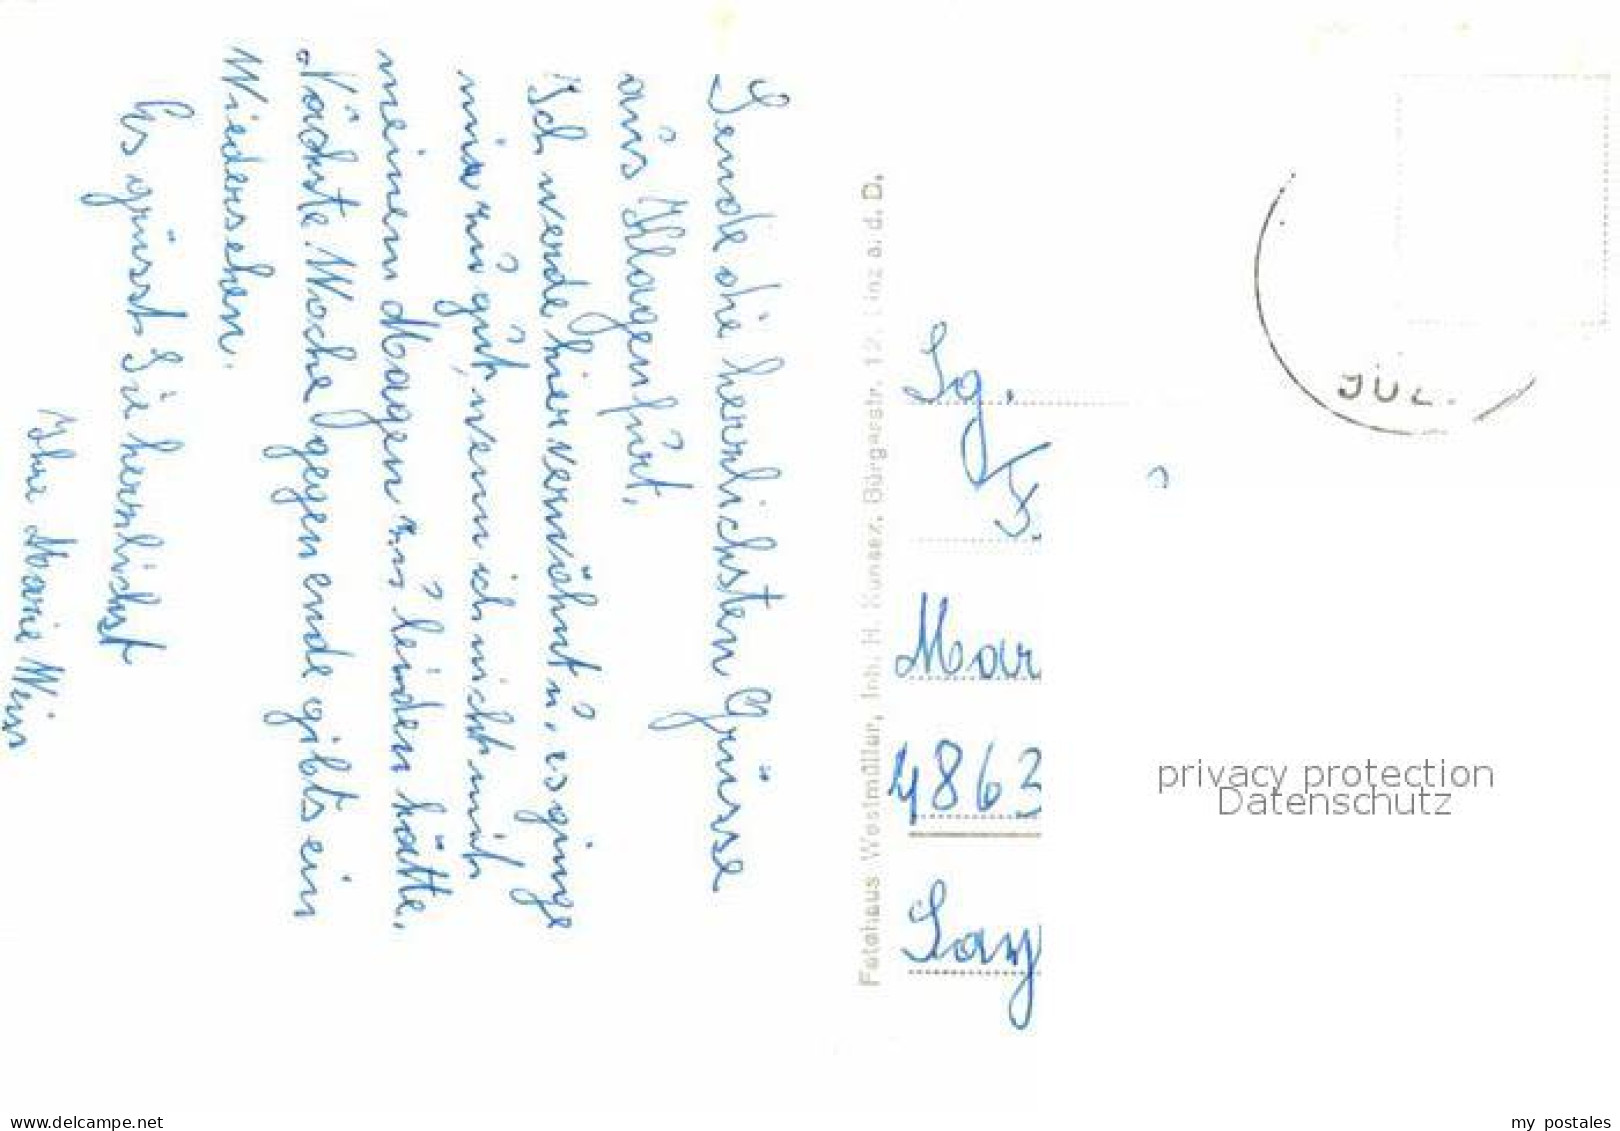 Sende die herrlichsten Grüsse
aus Klagenfurt.
Ich werde hier verwöhnt u. es ginge
mir zu gut, wenn ich nicht mit
meinem Magen zu leiden hätte.
Nächste Woche gegen ende gibts ein
Wiedersehen.
Es grüsst Sie herzlichst
Ihre Marie Weiss
Fotohaus Westmüller, Inh. H. Kunsex, Bürgerstr. 12, Linz a. d. D.
JUL.
Sg.
F.
Mar
4863
Say
privacy protection
Datenschutz
www.delcampe.net
my_postales